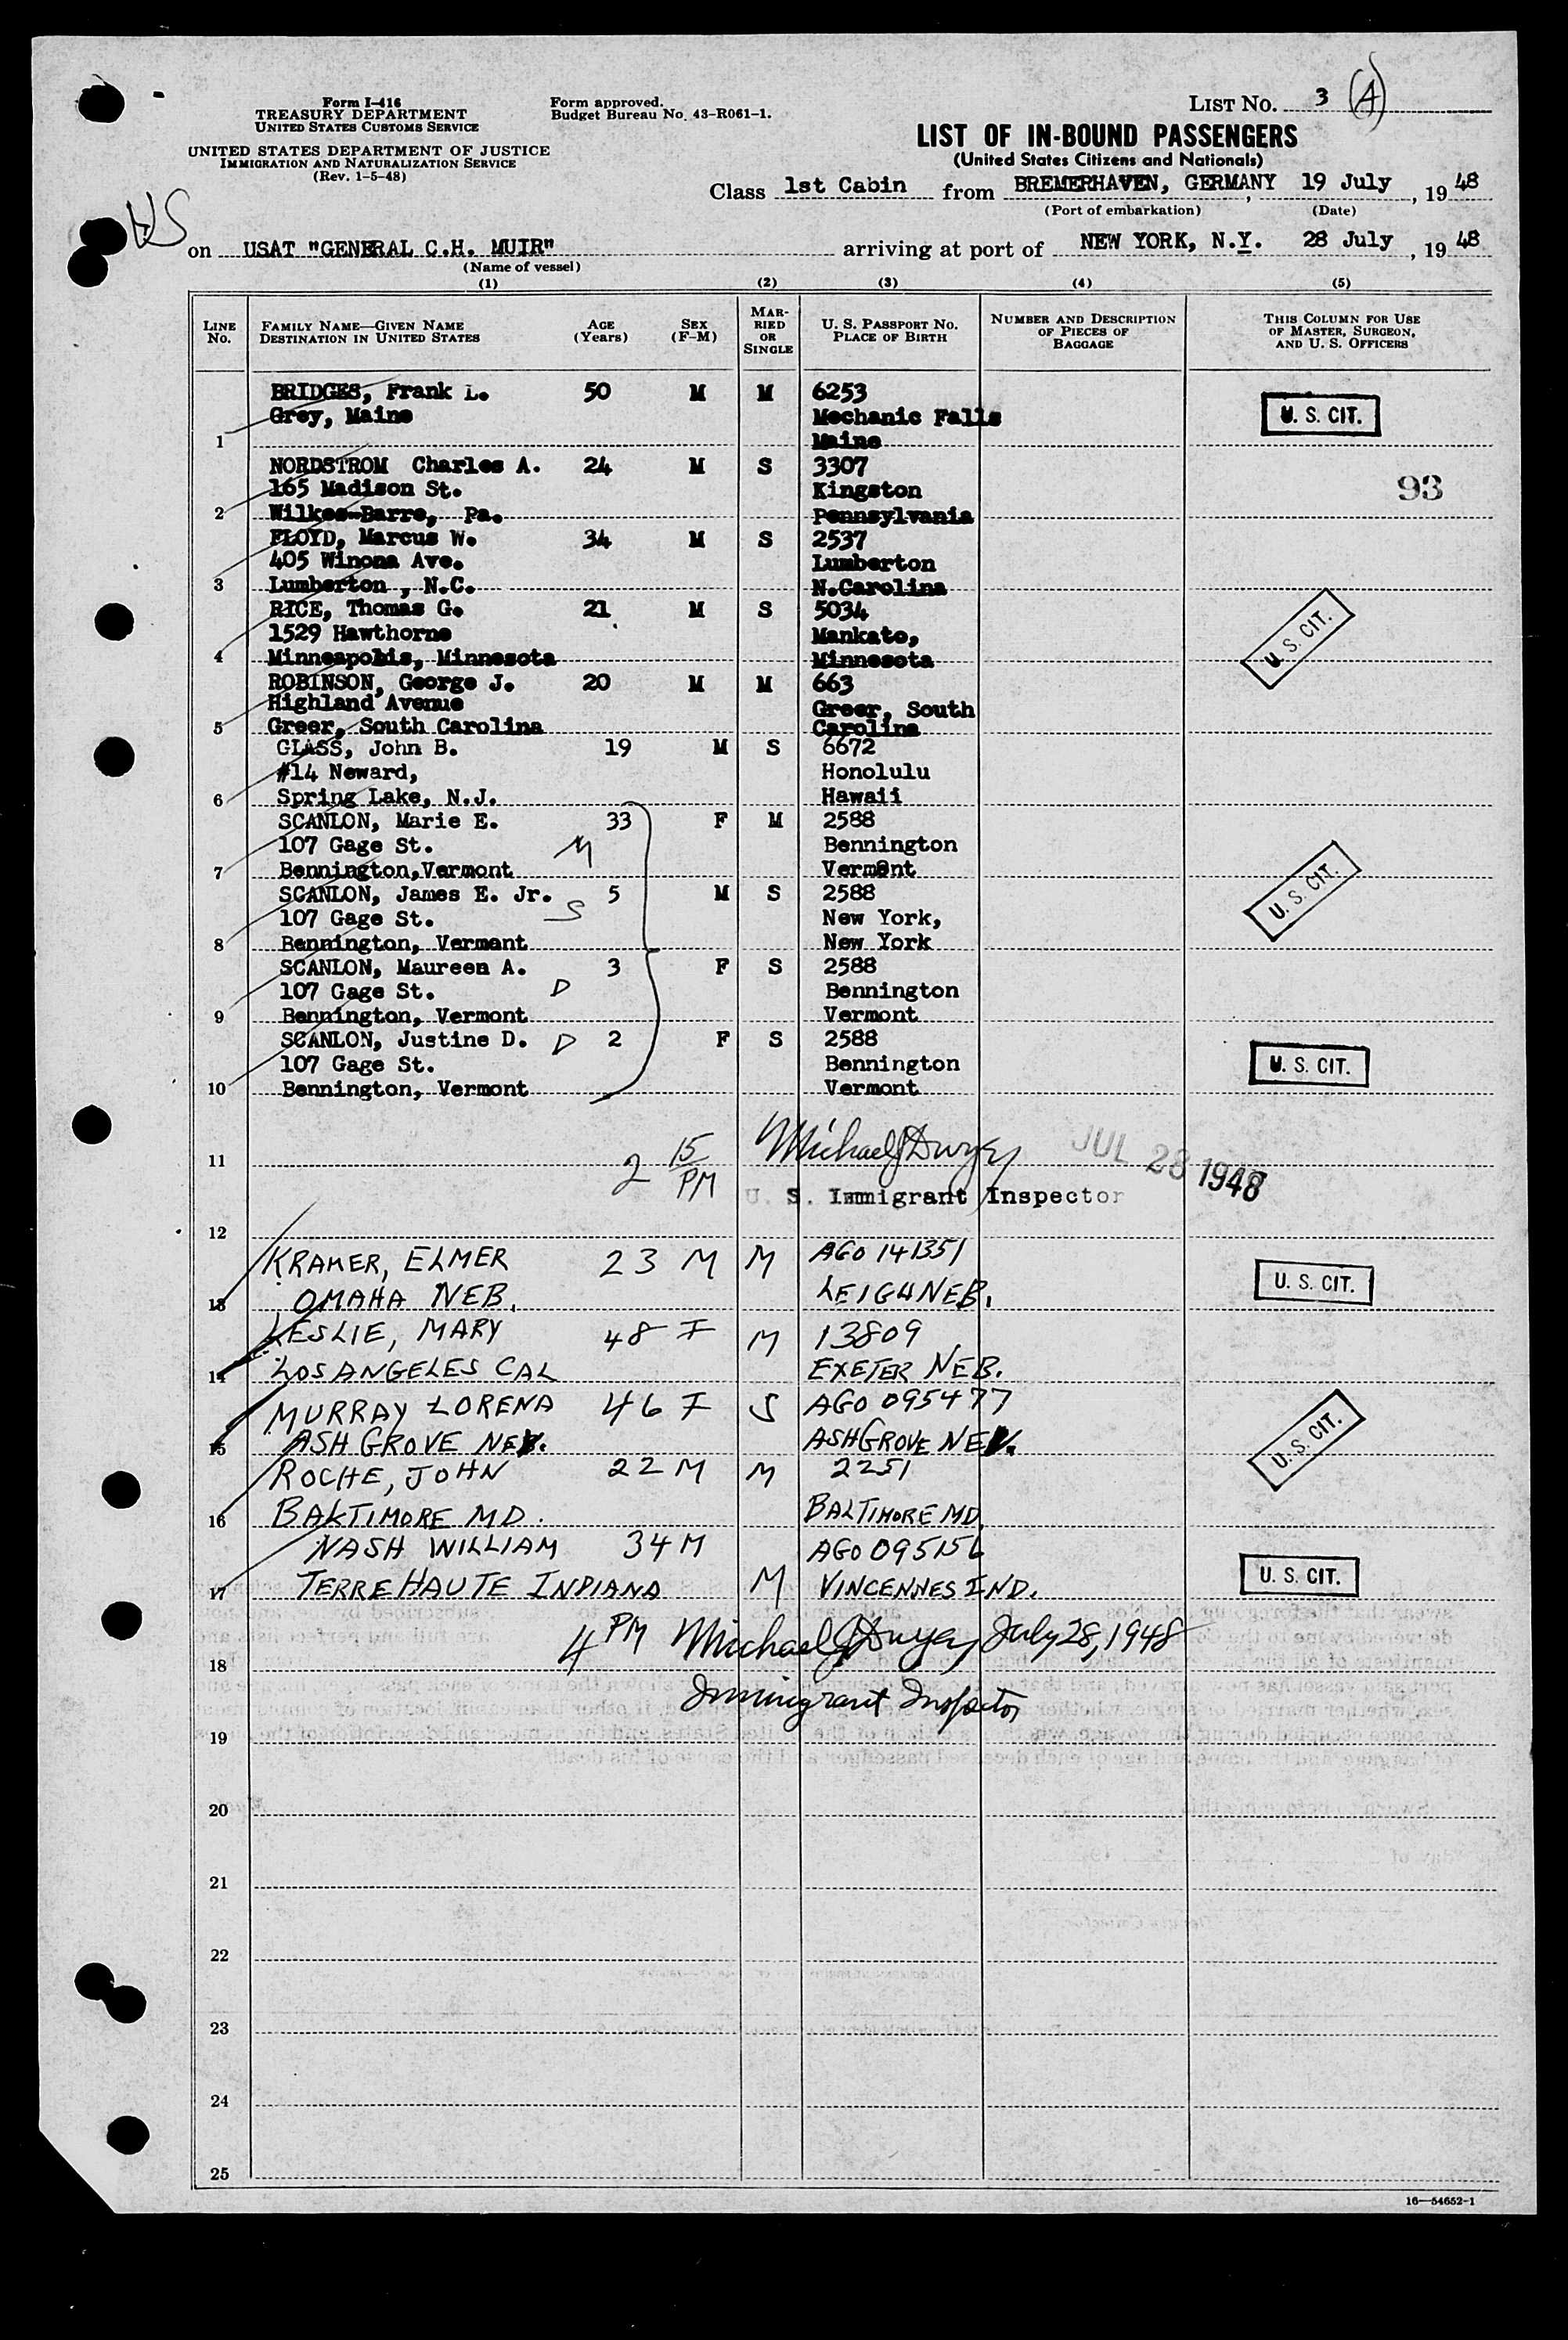 Form I-416
TREASURY DEPARTMENT
UNITED STATES CUSTOMS SERVICE
UNITED STATES DEPARTMENT OF JUSTICE
IMMIGRATION AND NATURALIZATION SERVICE
(Rev. 1-5-48)
Form approved.
Budget Bureau No. 43-R061-1.
LIST NO. 3 (A)
LIST OF IN-BOUND PASSENGERS
(United States Citizens and Nationals)
Class 1st Cabin from BREMERHAVEN, GERMANY, 19 July, 1948
(Port of embarkation) (Date)
on USAT "GENERAL C.H. MUIR" arriving at port of NEW YORK, N.Y. 28 July, 1948
(Name of vessel)
(1) (2) (3) (4) (5)
LINE NO. FAMILY NAME—GIVEN NAME DESTINATION IN UNITED STATES AGE (Years) SEX (F-M) MARRIED OR SINGLE U. S. PASSPORT NO. PLACE OF BIRTH NUMBER AND DESCRIPTION OF PIECES OF BAGGAGE THIS COLUMN FOR USE OF MASTER, SURGEON, AND U. S. OFFICERS
BRIDGES, Frank L. 50 M M 6253
Grey, Maine Mechanic Falls U. S. CIT.
1 Maine
NORDSTROM Charles A. 24 M S 3307
165 Madison St. Kingston 93
2 Wilkes-Barre, Pa. Pennsylvania
FLOYD, Marcus W. 34 M S 2537
405 Winona Ave. Lumberton
3 Lumberton, N.C. N.Carolina
RICE, Thomas G. 21 M S 5034
1529 Hawthorne Mankato, U. S. CIT.
4 Minneapolis, Minnesota Minnesota
ROBINSON, George J. 20 M M 663
Highland Avenue Greer, South
5 Greer, South Carolina Carolina
GLASS, John B. 19 M S 6672
#14 Neward, Honolulu
6 Spring Lake, N.J. Hawaii
SCANLON, Marie E. 33 F M 2588
107 Gage St. M Bennington
7 Bennington,Vermont Vermont
SCANLON, James E. Jr. 5 M S 2588 U. S. CIT.
107 Gage St. S New York,
8 Bennington, Vermont New York
SCANLON, Maureen A. 3 F S 2588
107 Gage St. D Bennington
9 Bennington, Vermont Vermont
SCANLON, Justine D. D 2 F S 2588
107 Gage St. Bennington U. S. CIT.
10 Bennington, Vermont Vermont
11 2 15/PM Michael J Dwyer JUL 28 1948
U. S. Immigrant Inspector
12
KRAMER, ELMER 23 M M AGO 141351
13 OMAHA NEB. LEIGH NEB. U. S. CIT.
LESLIE, MARY 48 F M 13809
14 LOS ANGELES CAL EXETER NEB.
MURRAY LORENA 46 F S AGO 095477
15 ASH GROVE NEV. ASHGROVE NEV. U. S. CIT.
ROCHE, JOHN 22 M M 2251
16 BALTIMORE MD. BALTIMORE MD.
NASH WILLIAM 34 M AGO 095156
17 TERRE HAUTE INDIANA M VINCENNES IND. U. S. CIT.
18 4 PM Michael J Dwyer July 28, 1948
Immigrant Inspector
19
20
21
22
23
24
25
16—54652-1